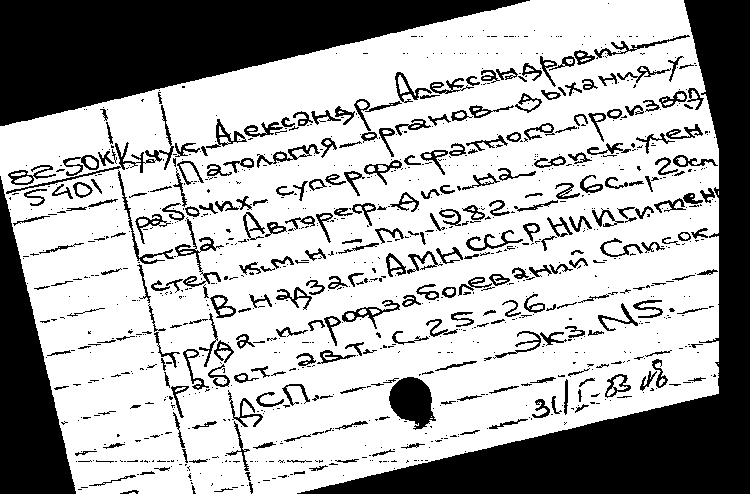 82-50К Кучук, Александр Александрович
5401 Патология органов дыхания у
рабочих суперфосфатного производ-
ства: Автореф. дис. на соиск. учен.
степ. к.м.н. – М., 1982. – 26с.; 20см
В надзаг.: АМН СССР, НИИ гигиены
труда и профзаболеваний. Список
работ авт.: с. 25-26.
Экз. N5.
ДСП.
31/I-83